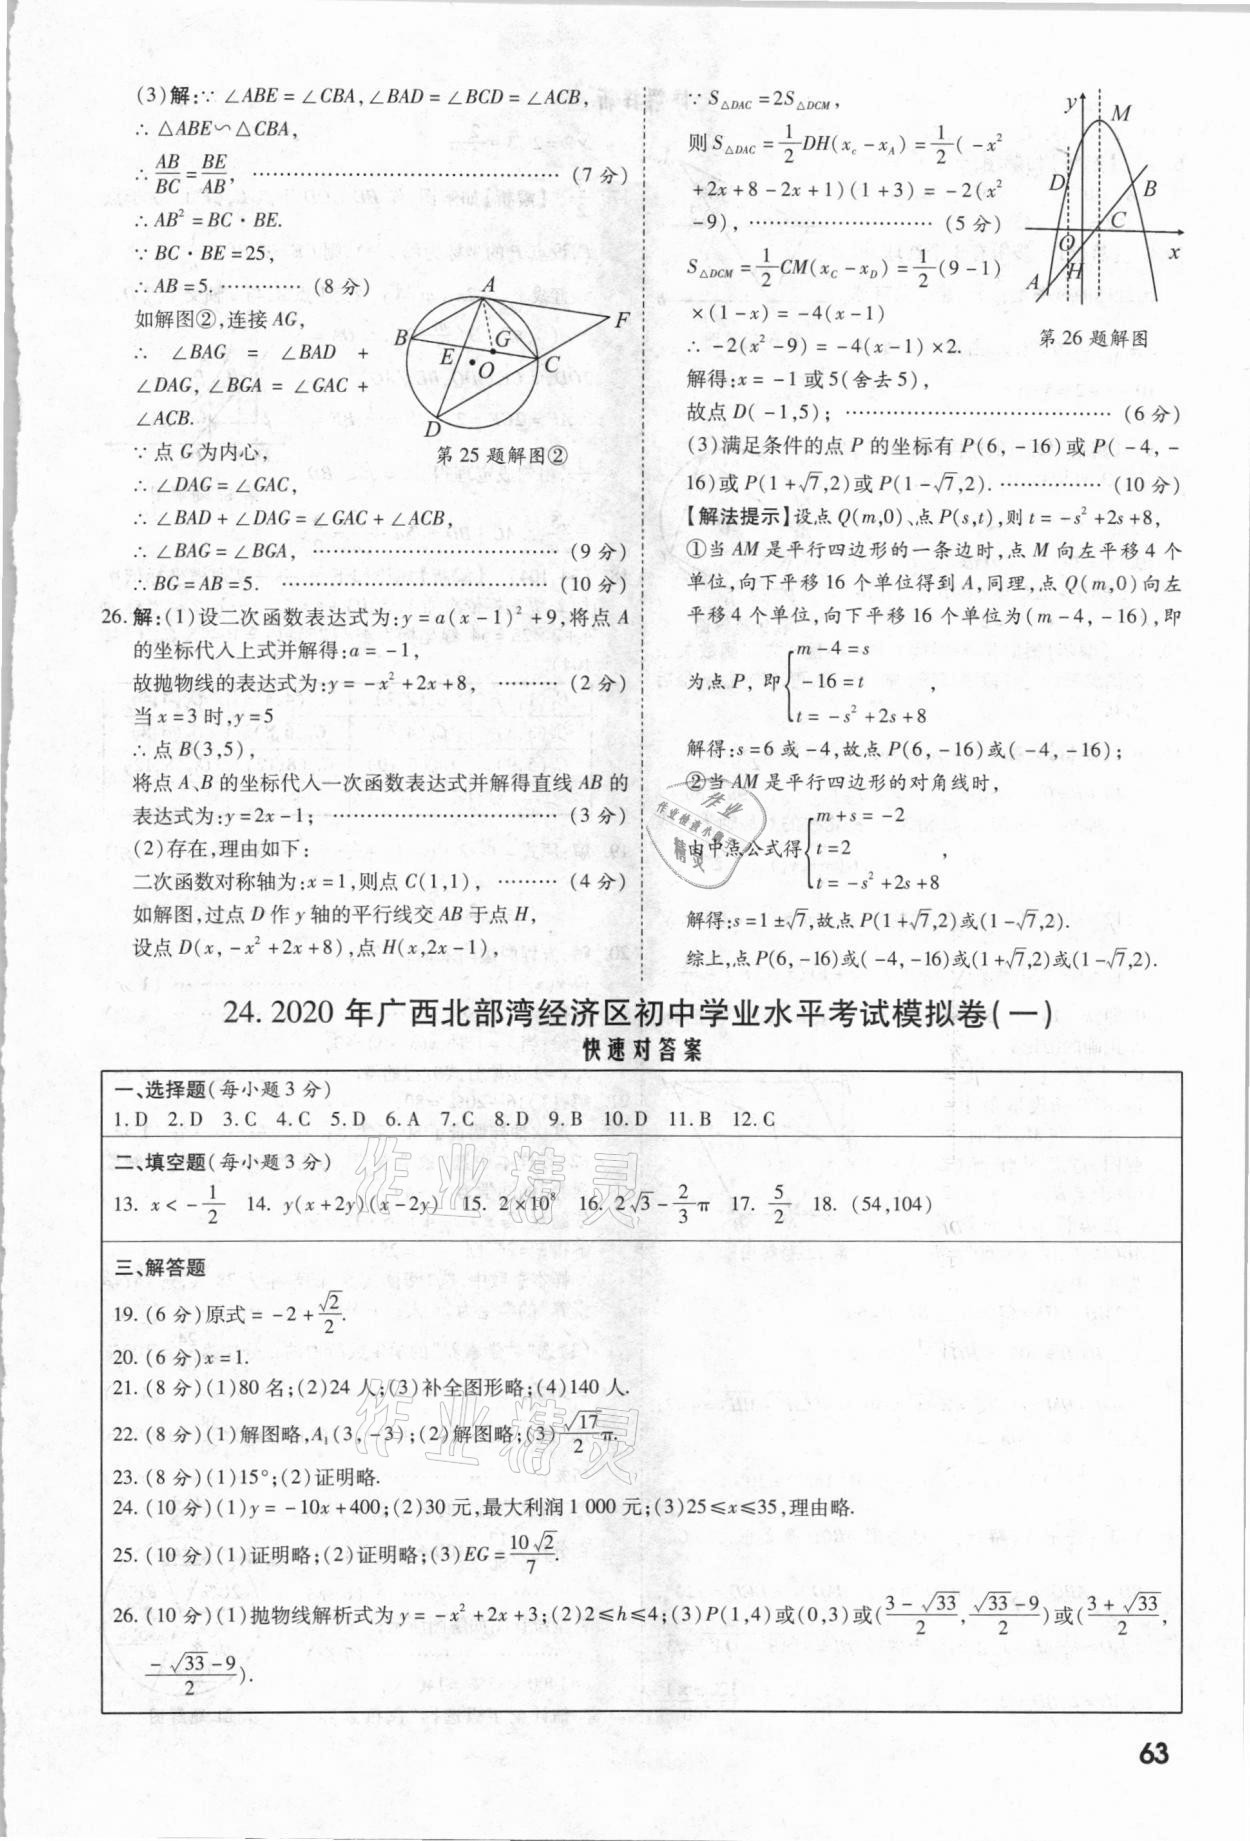 (3)解:∵ ∠ABE=∠CBA,∠BAD=∠BCD=∠ACB,
∴ △ABE∽△CBA,
∴ AB/BC=BE/AB, ……………………………… (7 分)
∴ AB²=BC·BE.
∵ BC·BE=25,
∴ AB=5. ………… (8 分)
如解图②,连接 AG,
∴ ∠BAG = ∠BAD +
∠DAG,∠BGA = ∠GAC +
∠ACB.
∵ 点 G 为内心,
∴ ∠DAG=∠GAC,
∴ ∠BAD+∠DAG=∠GAC+∠ACB,
∴ ∠BAG=∠BGA, ……………………… (9 分)
∴ BG=AB=5. ……………………………… (10 分)
A
B
C
D
E
F
G
O
第 25 题解图②
26. 解:(1)设二次函数表达式为:y=a(x-1)²+9,将点 A
的坐标代入上式并解得:a=-1,
故抛物线的表达式为:y=-x²+2x+8, ……… (2 分)
当 x=3 时,y=5
∴ 点 B(3,5),
将点 A、B 的坐标代入一次函数表达式并解得直线 AB 的
表达式为:y=2x-1; …………………………… (3 分)
(2)存在,理由如下:
二次函数对称轴为:x=1,则点 C(1,1), ……… (4 分)
如解图,过点 D 作 y 轴的平行线交 AB 于点 H,
设点 D(x,-x²+2x+8),点 H(x,2x-1),
∵ S△DAC=2S△DCM,
则 S△DAC=1/2DH(x_c-x_A)=1/2(-x²
+2x+8-2x+1)(1+3)=-2(x²
-9), ………………… (5 分)
S△DCM=1/2CM(x_C-x_D)=1/2(9-1)
×(1-x)=-4(x-1)
∴ -2(x²-9)=-4(x-1)×2.
解得:x=-1 或5(舍去5),
故点 D(-1,5); ……………………………… (6 分)
y
M
D
B
C
O
x
A
H
第 26 题解图
(3)满足条件的点 P 的坐标有 P(6,-16)或 P(-4,-
16)或 P(1+√7,2)或 P(1-√7,2). …………… (10 分)
【解法提示】设点 Q(m,0)、点 P(s,t),则 t=-s²+2s+8,
①当 AM 是平行四边形的一条边时,点 M 向左平移 4 个
单位,向下平移 16 个单位得到 A,同理,点 Q(m,0)向左
平移 4 个单位,向下平移 16 个单位为(m-4,-16),即
m-4=s
为点 P, 即{-16=t ,
t=-s²+2s+8
解得:s=6 或-4,故点 P(6,-16)或(-4,-16);
②当 AM 是平行四边形的对角线时,
m+s=-2
由中点公式得{t=2 ,
t=-s²+2s+8
解得:s=1±√7,故点 P(1+√7,2)或(1-√7,2).
综上,点 P(6,-16)或(-4,-16)或(1+√7,2)或(1-√7,2).
24. 2020 年广西北部湾经济区初中学业水平考试模拟卷(一)
快速对答案
一、选择题(每小题 3 分)
1. D 2. D 3. C 4. C 5. D 6. A 7. C 8. D 9. B 10. D 11. B 12. C
二、填空题(每小题 3 分)
13. x<-1/2 14. y(x+2y)(x-2y) 15. 2×10⁸ 16. 2√3-2/3π 17. 5/2 18. (54,104)
三、解答题
19. (6 分)原式=-2+√2/2.
20. (6 分)x=1.
21. (8 分)(1)80 名;(2)24 人;(3)补全图形略;(4)140 人.
22. (8 分)(1)解图略,A₁(3,-3);(2)解图略;(3)√17/2π.
23. (8 分)(1)15°;(2)证明略.
24. (10 分)(1)y=-10x+400;(2)30 元,最大利润 1 000 元;(3)25≤x≤35,理由略.
25. (10 分)(1)证明略;(2)证明略;(3)EG=10√2/7.
26. (10 分)(1)抛物线解析式为 y=-x²+2x+3;(2)2≤h≤4;(3)P(1,4)或(0,3)或((3-√33)/2,(√33-9)/2)或((3+√33)/2,
(-√33-9)/2).
作业精灵
作业精灵
63